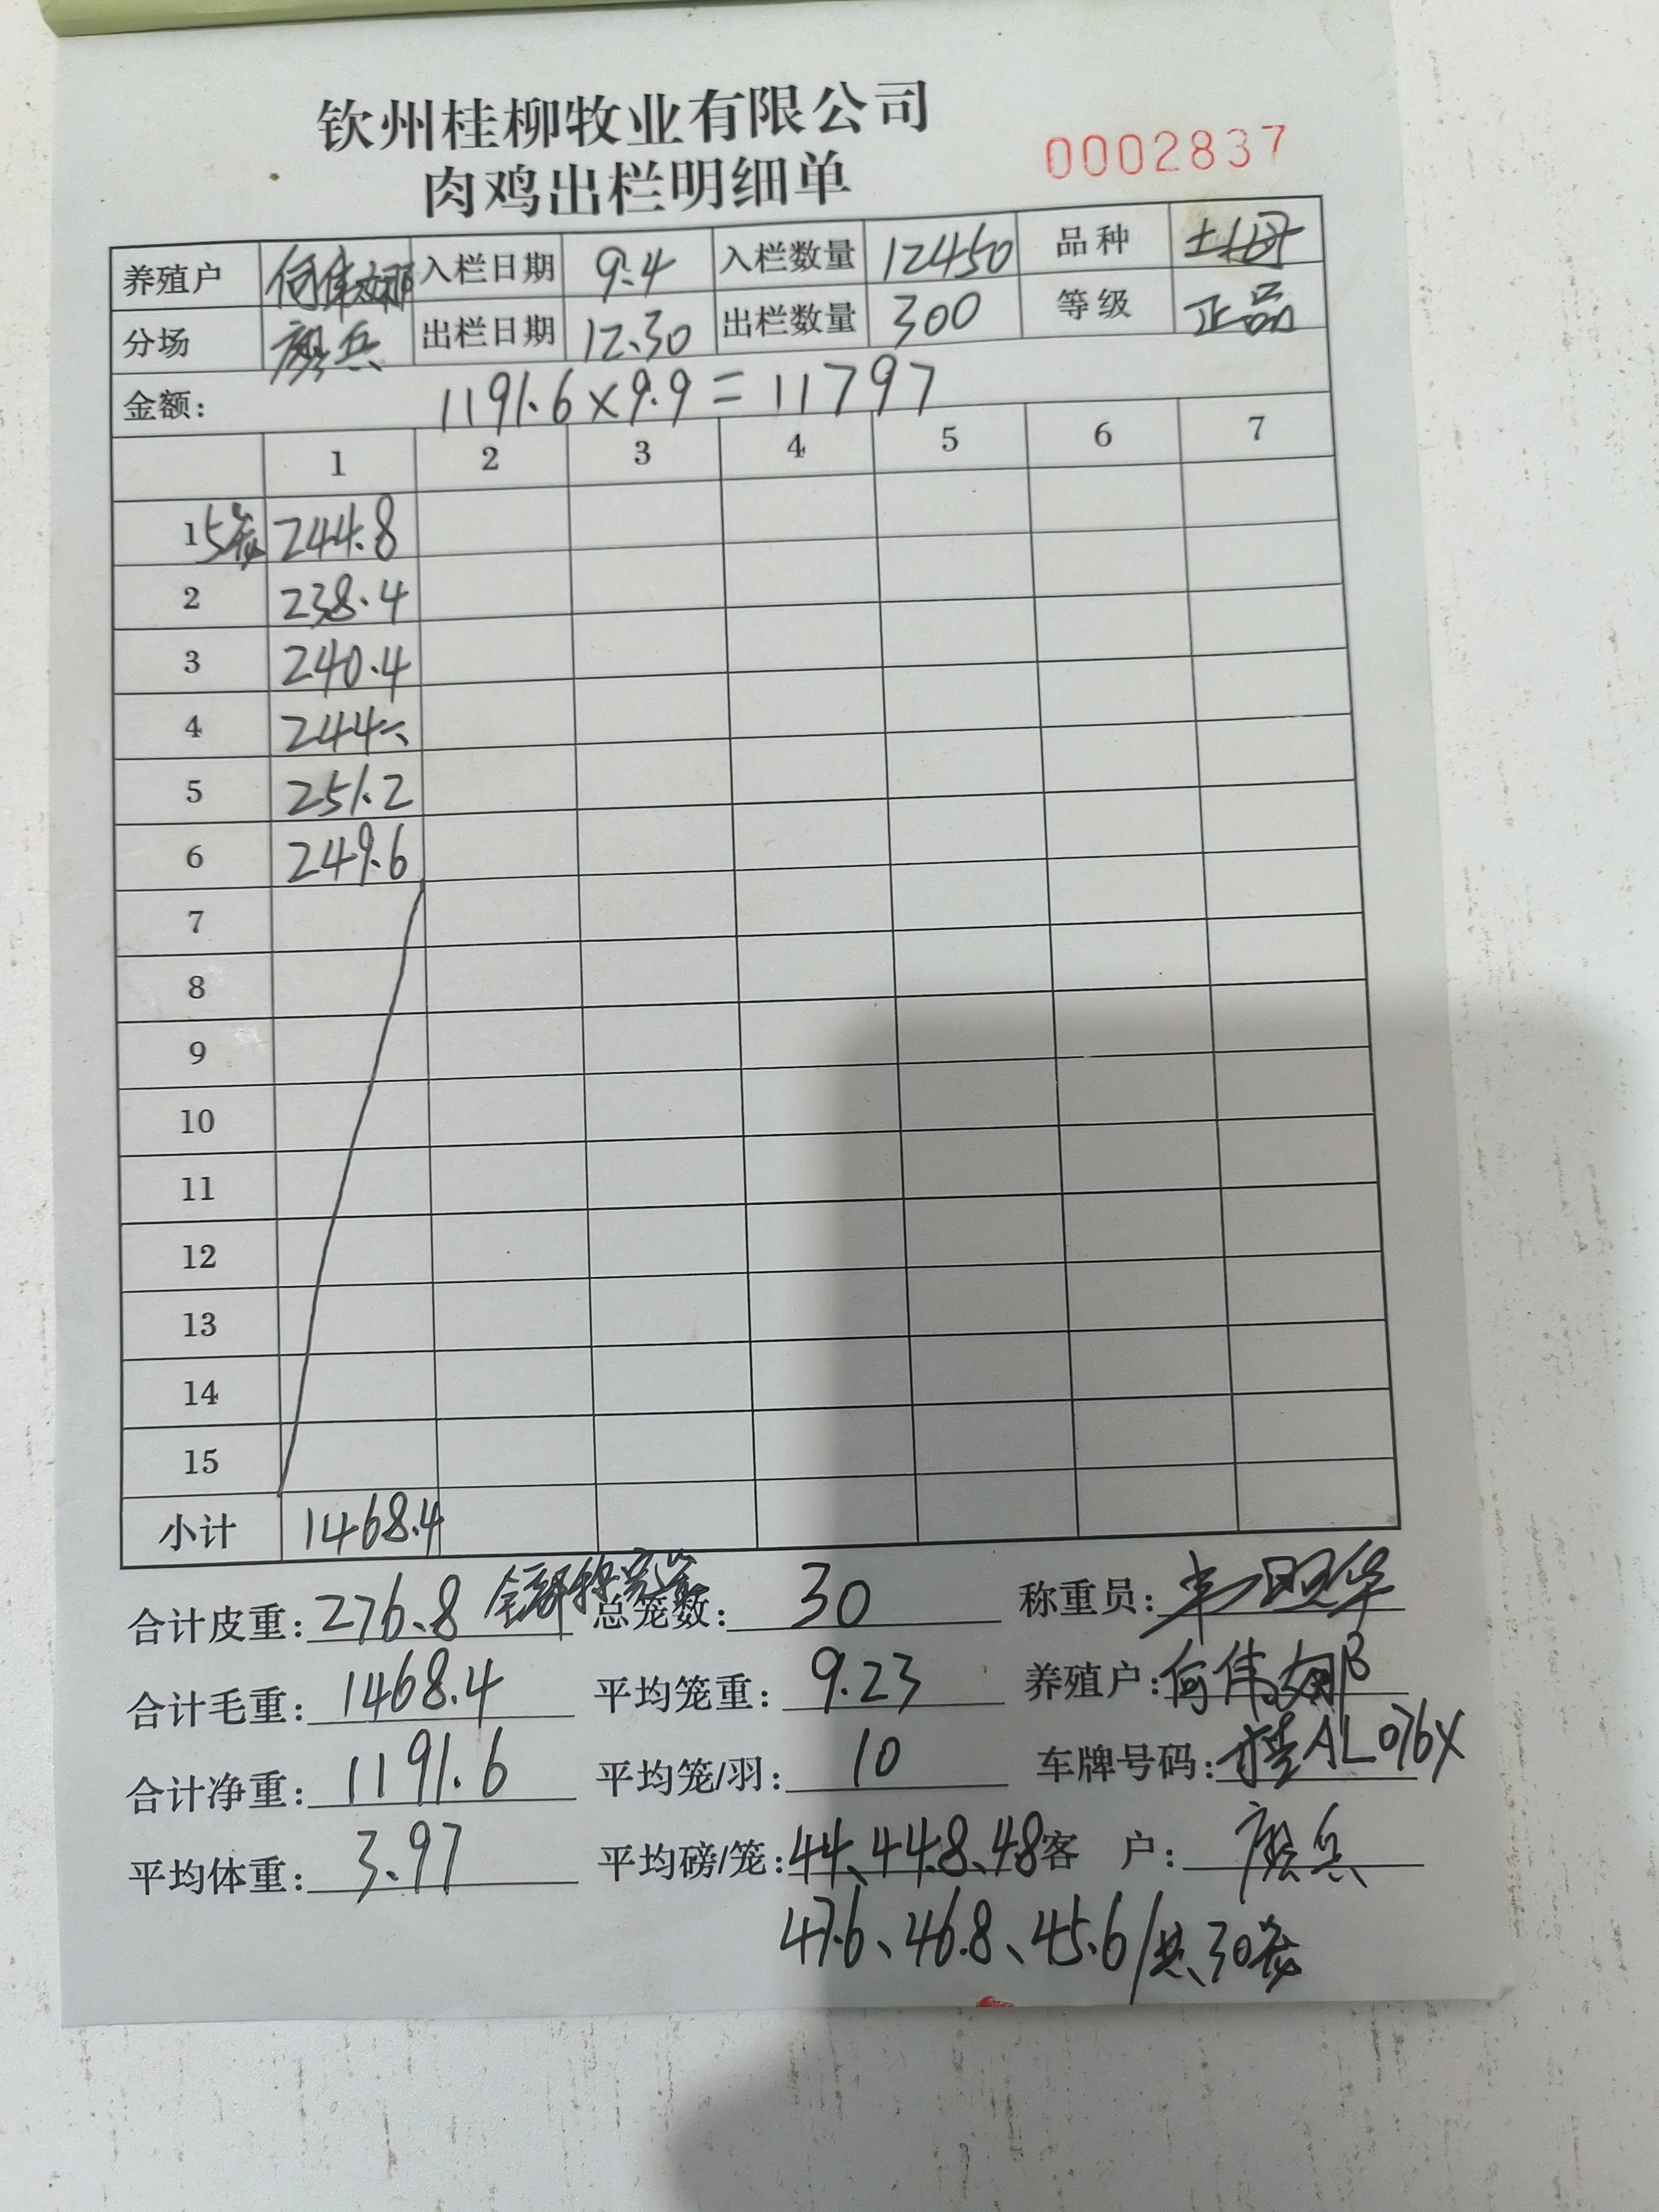 钦州桂柳牧业有限公司
肉鸡出栏明细单
0002837
养殖户 何伟娜 入栏日期 9.4 入栏数量 12450 品种 土2母
分场 廖兵 出栏日期 12.30 出栏数量 300 等级 正品
金额: 1191.6×9.9=11797
1 2 3 4 5 6 7
1 5笼 244.8
2 238.4
3 240.4
4 244
5 251.2
6 249.6
7
8
9
10
11
12
13
14
15
小计 1468.4
合计皮重: 276.8 全部称完 总笼数: 30 称重员:
合计毛重: 1468.4 平均笼重: 9.23 养殖户: 何伟娜
合计净重: 1191.6 平均笼/羽: 10 车牌号码: 桂AL076X
平均体重: 3.97 平均磅/笼: 44、44.8、48 客户: 廖兵
47.6、46.8、45.6/共30笼